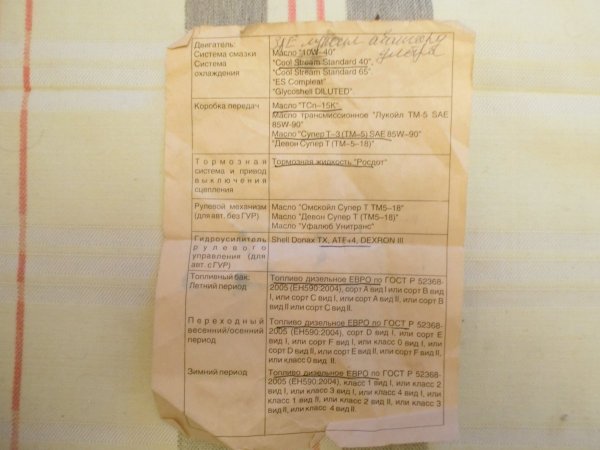 Двигатель:
Система смазки
Система
охлаждения
Масло "10W-40"
"Cool Stream Standard 40",
"Cool Stream Standard 65"
"ES Compleat"
"Glycoshell DILUTED".
Коробка передач
Масло "ТСп–15К"
Масло трансмиссионное "Лукойл ТМ-5 SAE
85W-90"
Масло "Супер Т–3 (ТМ–5) SAE 85W–90"
"Девон Супер Т (ТМ–5–18)"
Тормозная
система и привод
выключения
сцепления
Тормозная жидкость "Росдот"
Рулевой механизм
(для авт. без ГУР)
Масло "Омскойл Супер Т ТМ5–18"
Масло "Девон Супер Т (ТМ5–18)"
Масло "Уфалюб Унитранс"
Гидроусилитель
рулевого
управления (для
авт. с ГУР)
Shell Donax TX, ATF+4, DEXRON III
Топливный бак:
Летний период
Топливо дизельное ЕВРО по ГОСТ Р 52368-
2005 (ЕН590:2004), сорт А вид I или сорт В вид
I, или сорт С вид I, или сорт А вид II, или сорт В
вид II или сорт С вид II.
Переходный
весенний/осенний
период
Топливо дизельное ЕВРО по ГОСТ Р 52368-
2005 (ЕН590:2004), сорт D вид I, или сорт Е
вид I, или сорт F вид I, или класс 0 вид I, или
сорт D вид II, или сорт Е вид II, или сорт F вид
II, или класс 0 вид II.
Зимний период
Топливо дизельное ЕВРО по ГОСТ Р 52368-
2005 (ЕН590:2004), класс 1 вид I, или класс 2
вид I, или класс 3 вид I, или класс 4 вид I, или
класс 1 вид II, или класс 2 вид II, или класс 3
вид II, или класс 4 вид II.